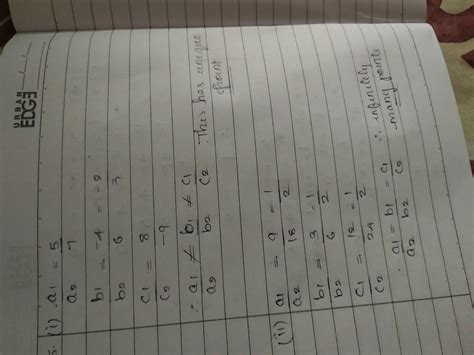 URBAN
EDGE
(i) a1/a2 = 5/7
b1/b2 = -4/6 = -2/3
c1/c2 = 8/-9
∴ a1/a2 ≠ b1/b2 ≠ c1/c2 This has unique
point
(ii) a1/a2 = 9/18 = 1/2
b1/b2 = 3/6 = 1/2
c1/c2 = 12/24 = 1/2
∴ a1/a2 = b1/b2 = c1/c2 ∴ infinitely
many points